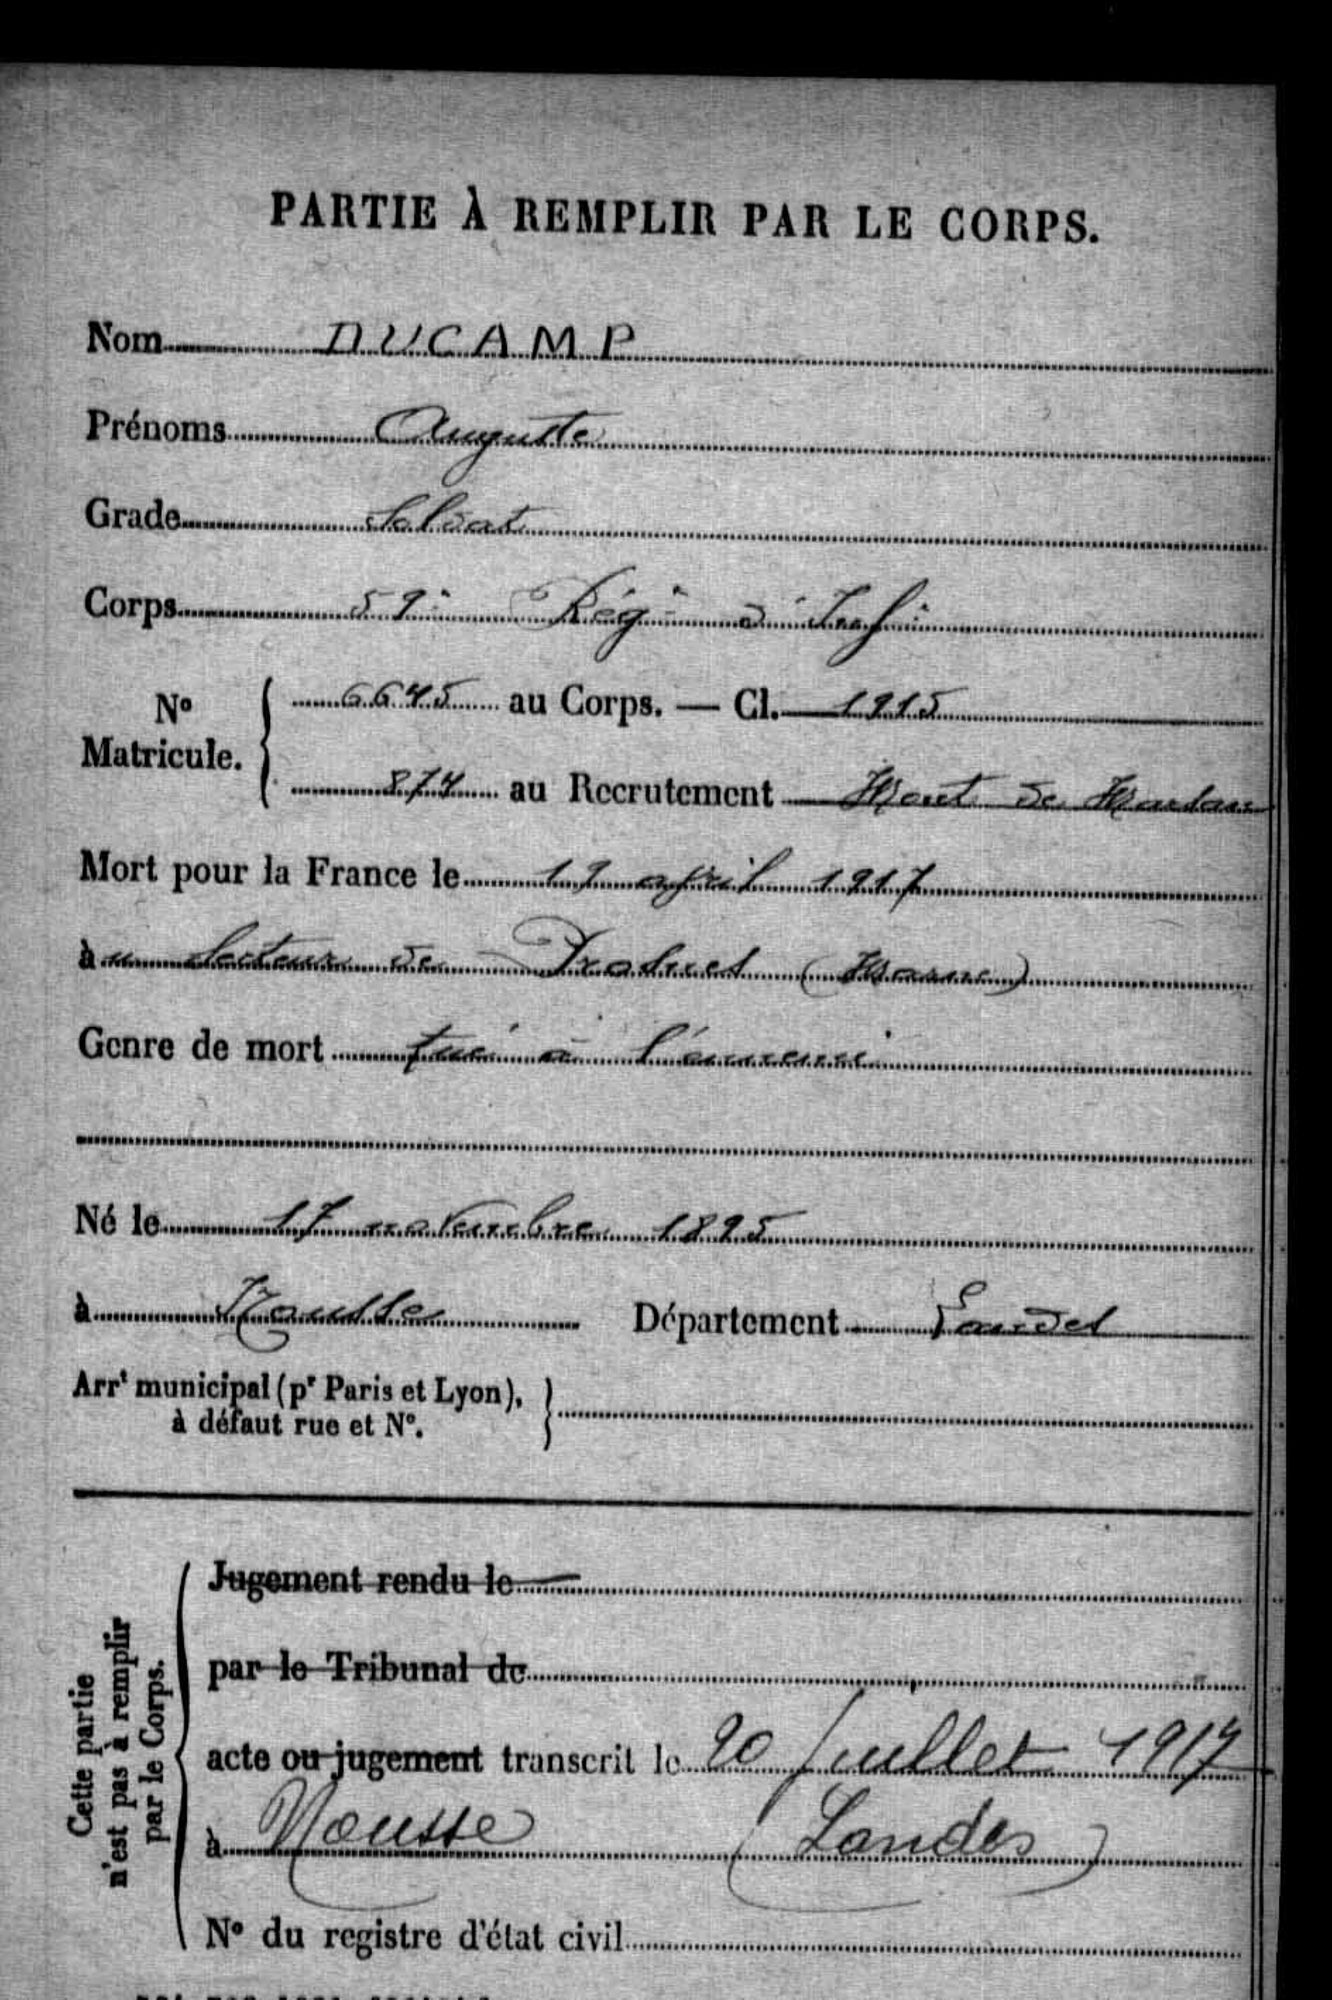 PARTIE À REMPLIR PAR LE CORPS.
Nom DUCAMP
Prénoms Auguste
Grade Soldat
Corps 59e Régt d'Inf
No Matricule. 6645 au Corps. — Cl. 1915
874 au Recrutement Mont de Marsan
Mort pour la France le 19 avril 1917
au Secteur de Prosnes (Marne)
Genre de mort tué à l'ennemi
Né le 17 novembre 1895
à Mousse Département Landes
Arrt municipal (pr Paris et Lyon),
à défaut rue et No.
Cette partie
n'est pas à remplir
par le Corps.
Jugement rendu le
par le Tribunal de
acte ou jugement transcrit le 20 Juillet 1917
à Nousse (Landes)
No du registre d'état civil